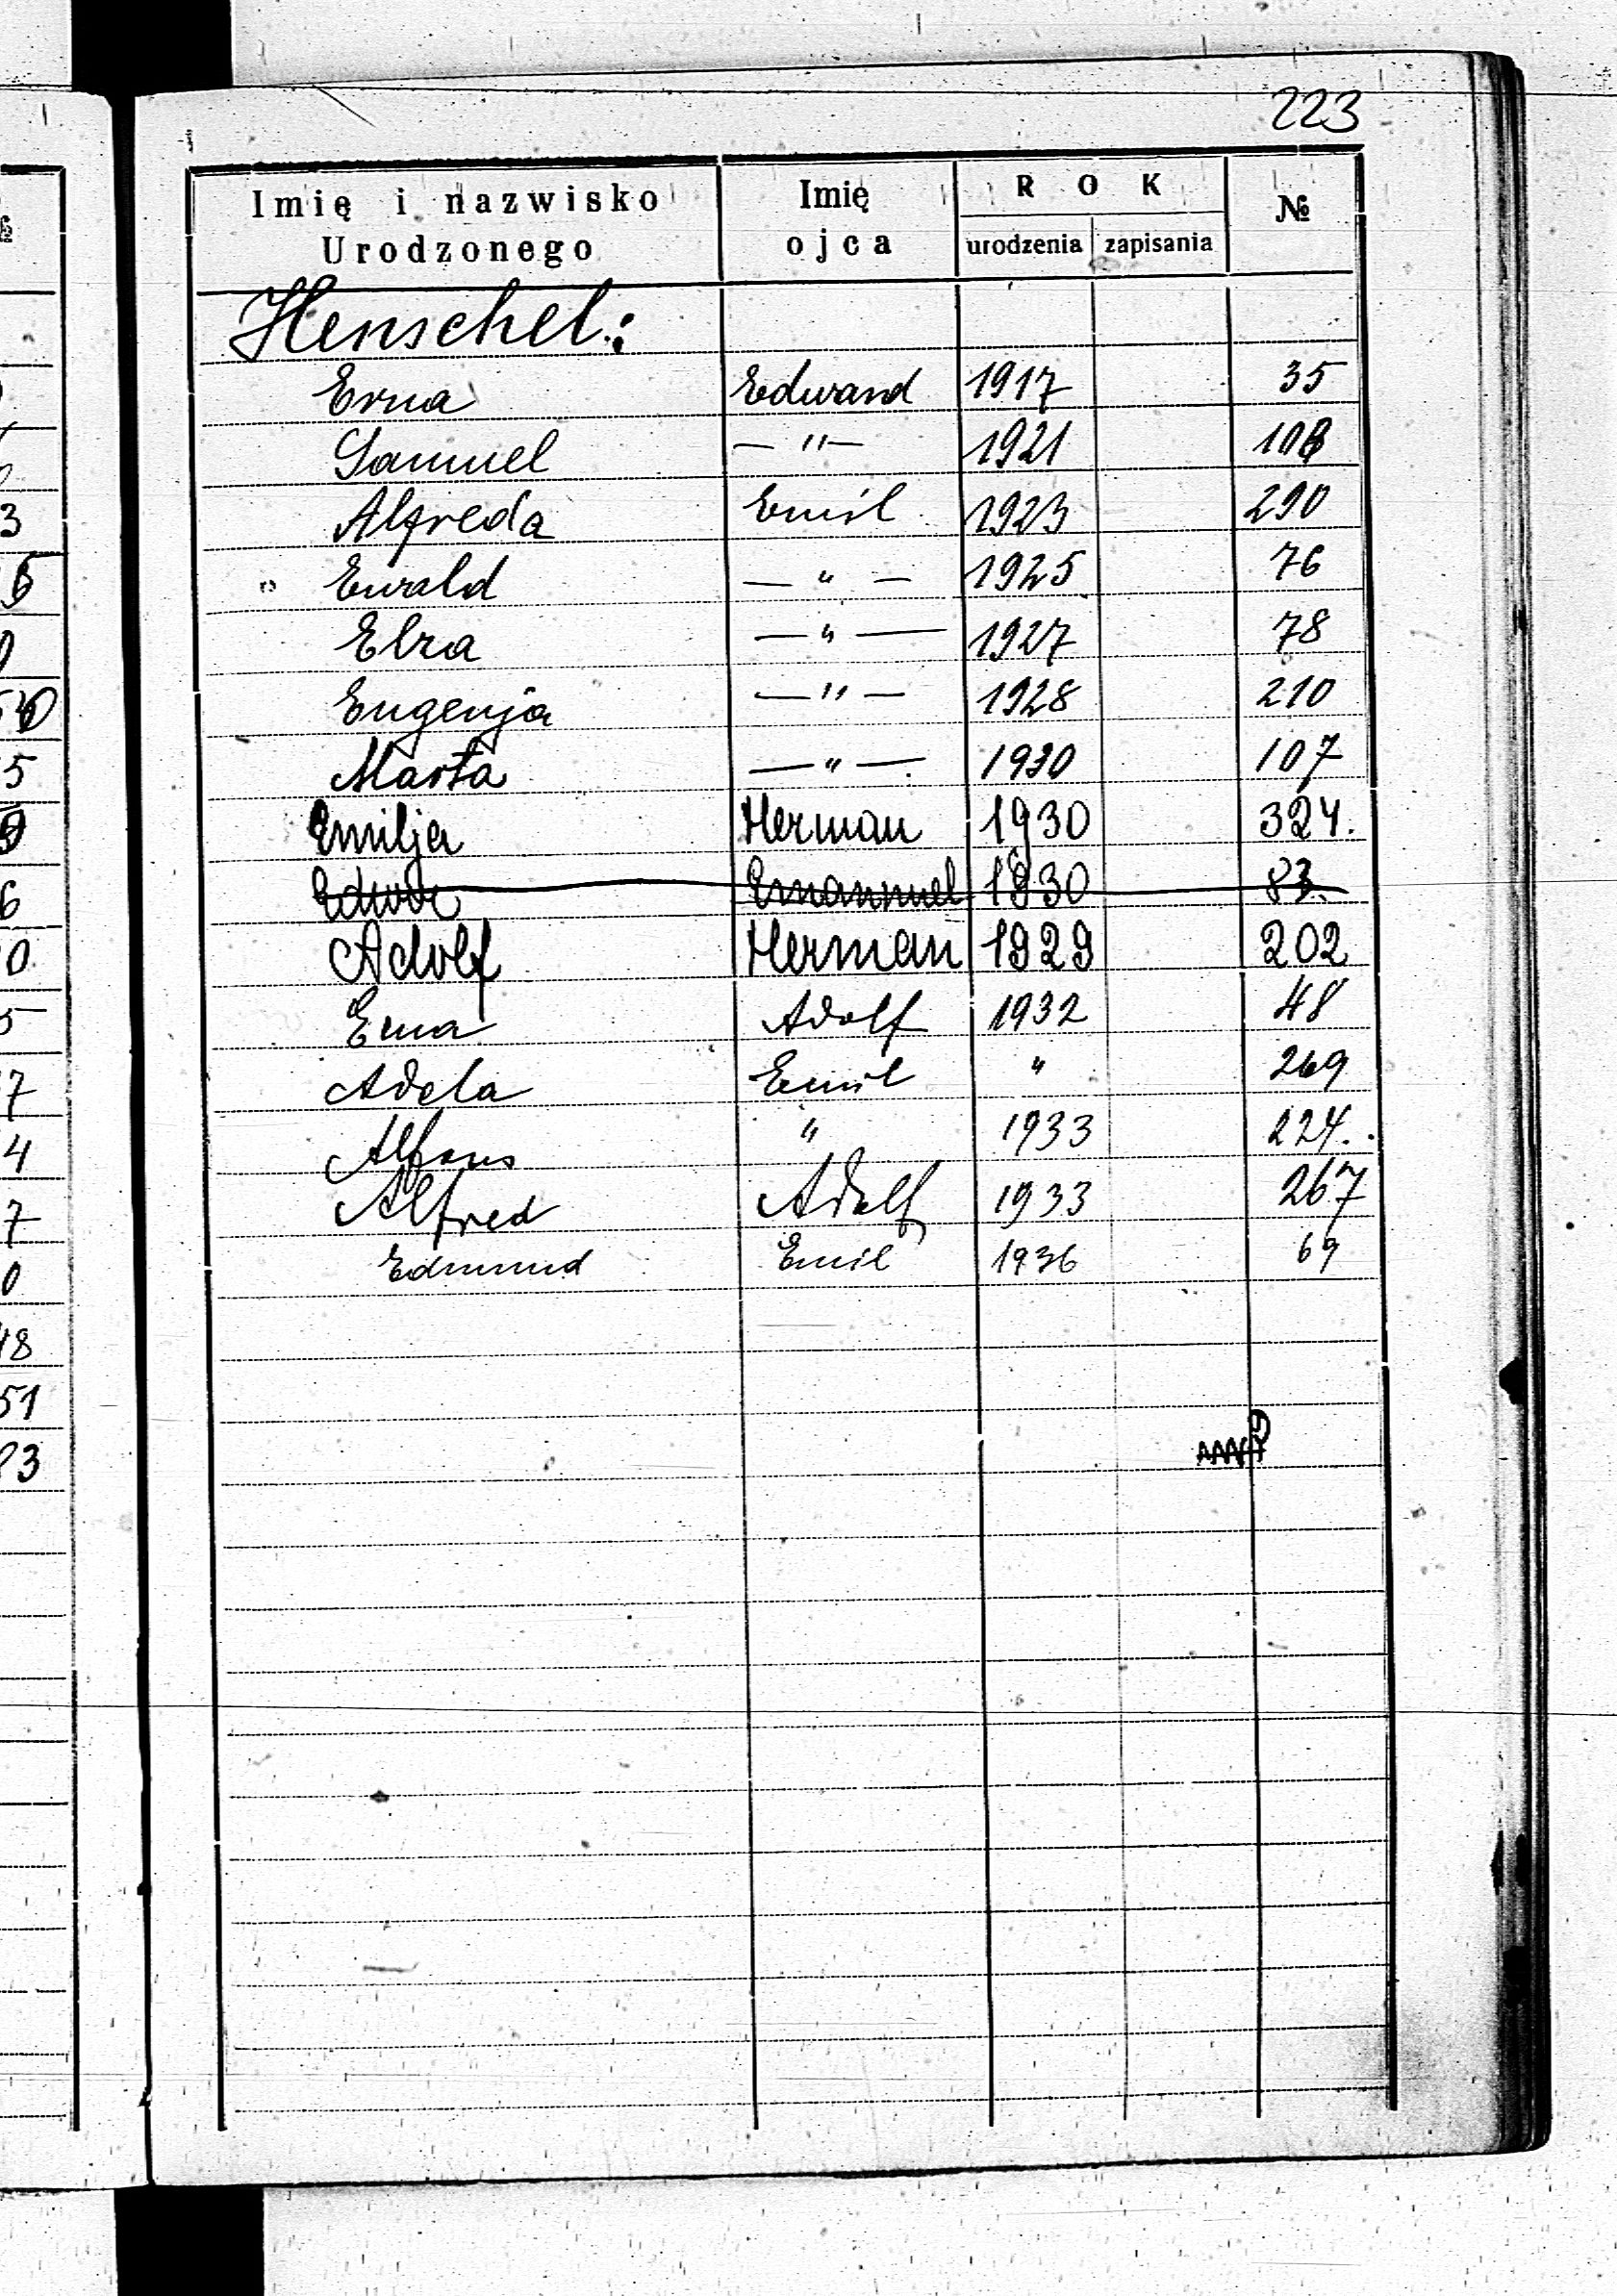 223
Imię i nazwisko Urodzonego | Imię ojca | ROK urodzenia | zapisania | №
Henschel:
Erna Edward 1917 35
Samuel — " — 1921 108
Alfreda Emil 1923 290
" Ewald — " — 1925 76
Elza — " — 1927 78
Eugenja — " — 1928 210
Marta — " — 1930 107
Emilja Herman 1930 324.
Emanuel 1930 83.
Adolf Herman 1929 202
Erna Adolf 1932 48
Adela Emil " 269
Alfons " 1933 224.
Alfred Adolf 1933 267
Edmund Emil 1936 69
3
0
5
6
0
5
7
4
7
0
48
51
3